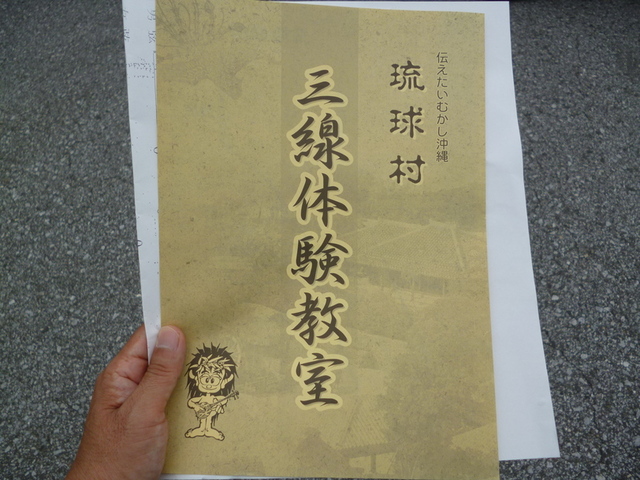 伝えたいむかし沖縄
琉球村
三線体験教室